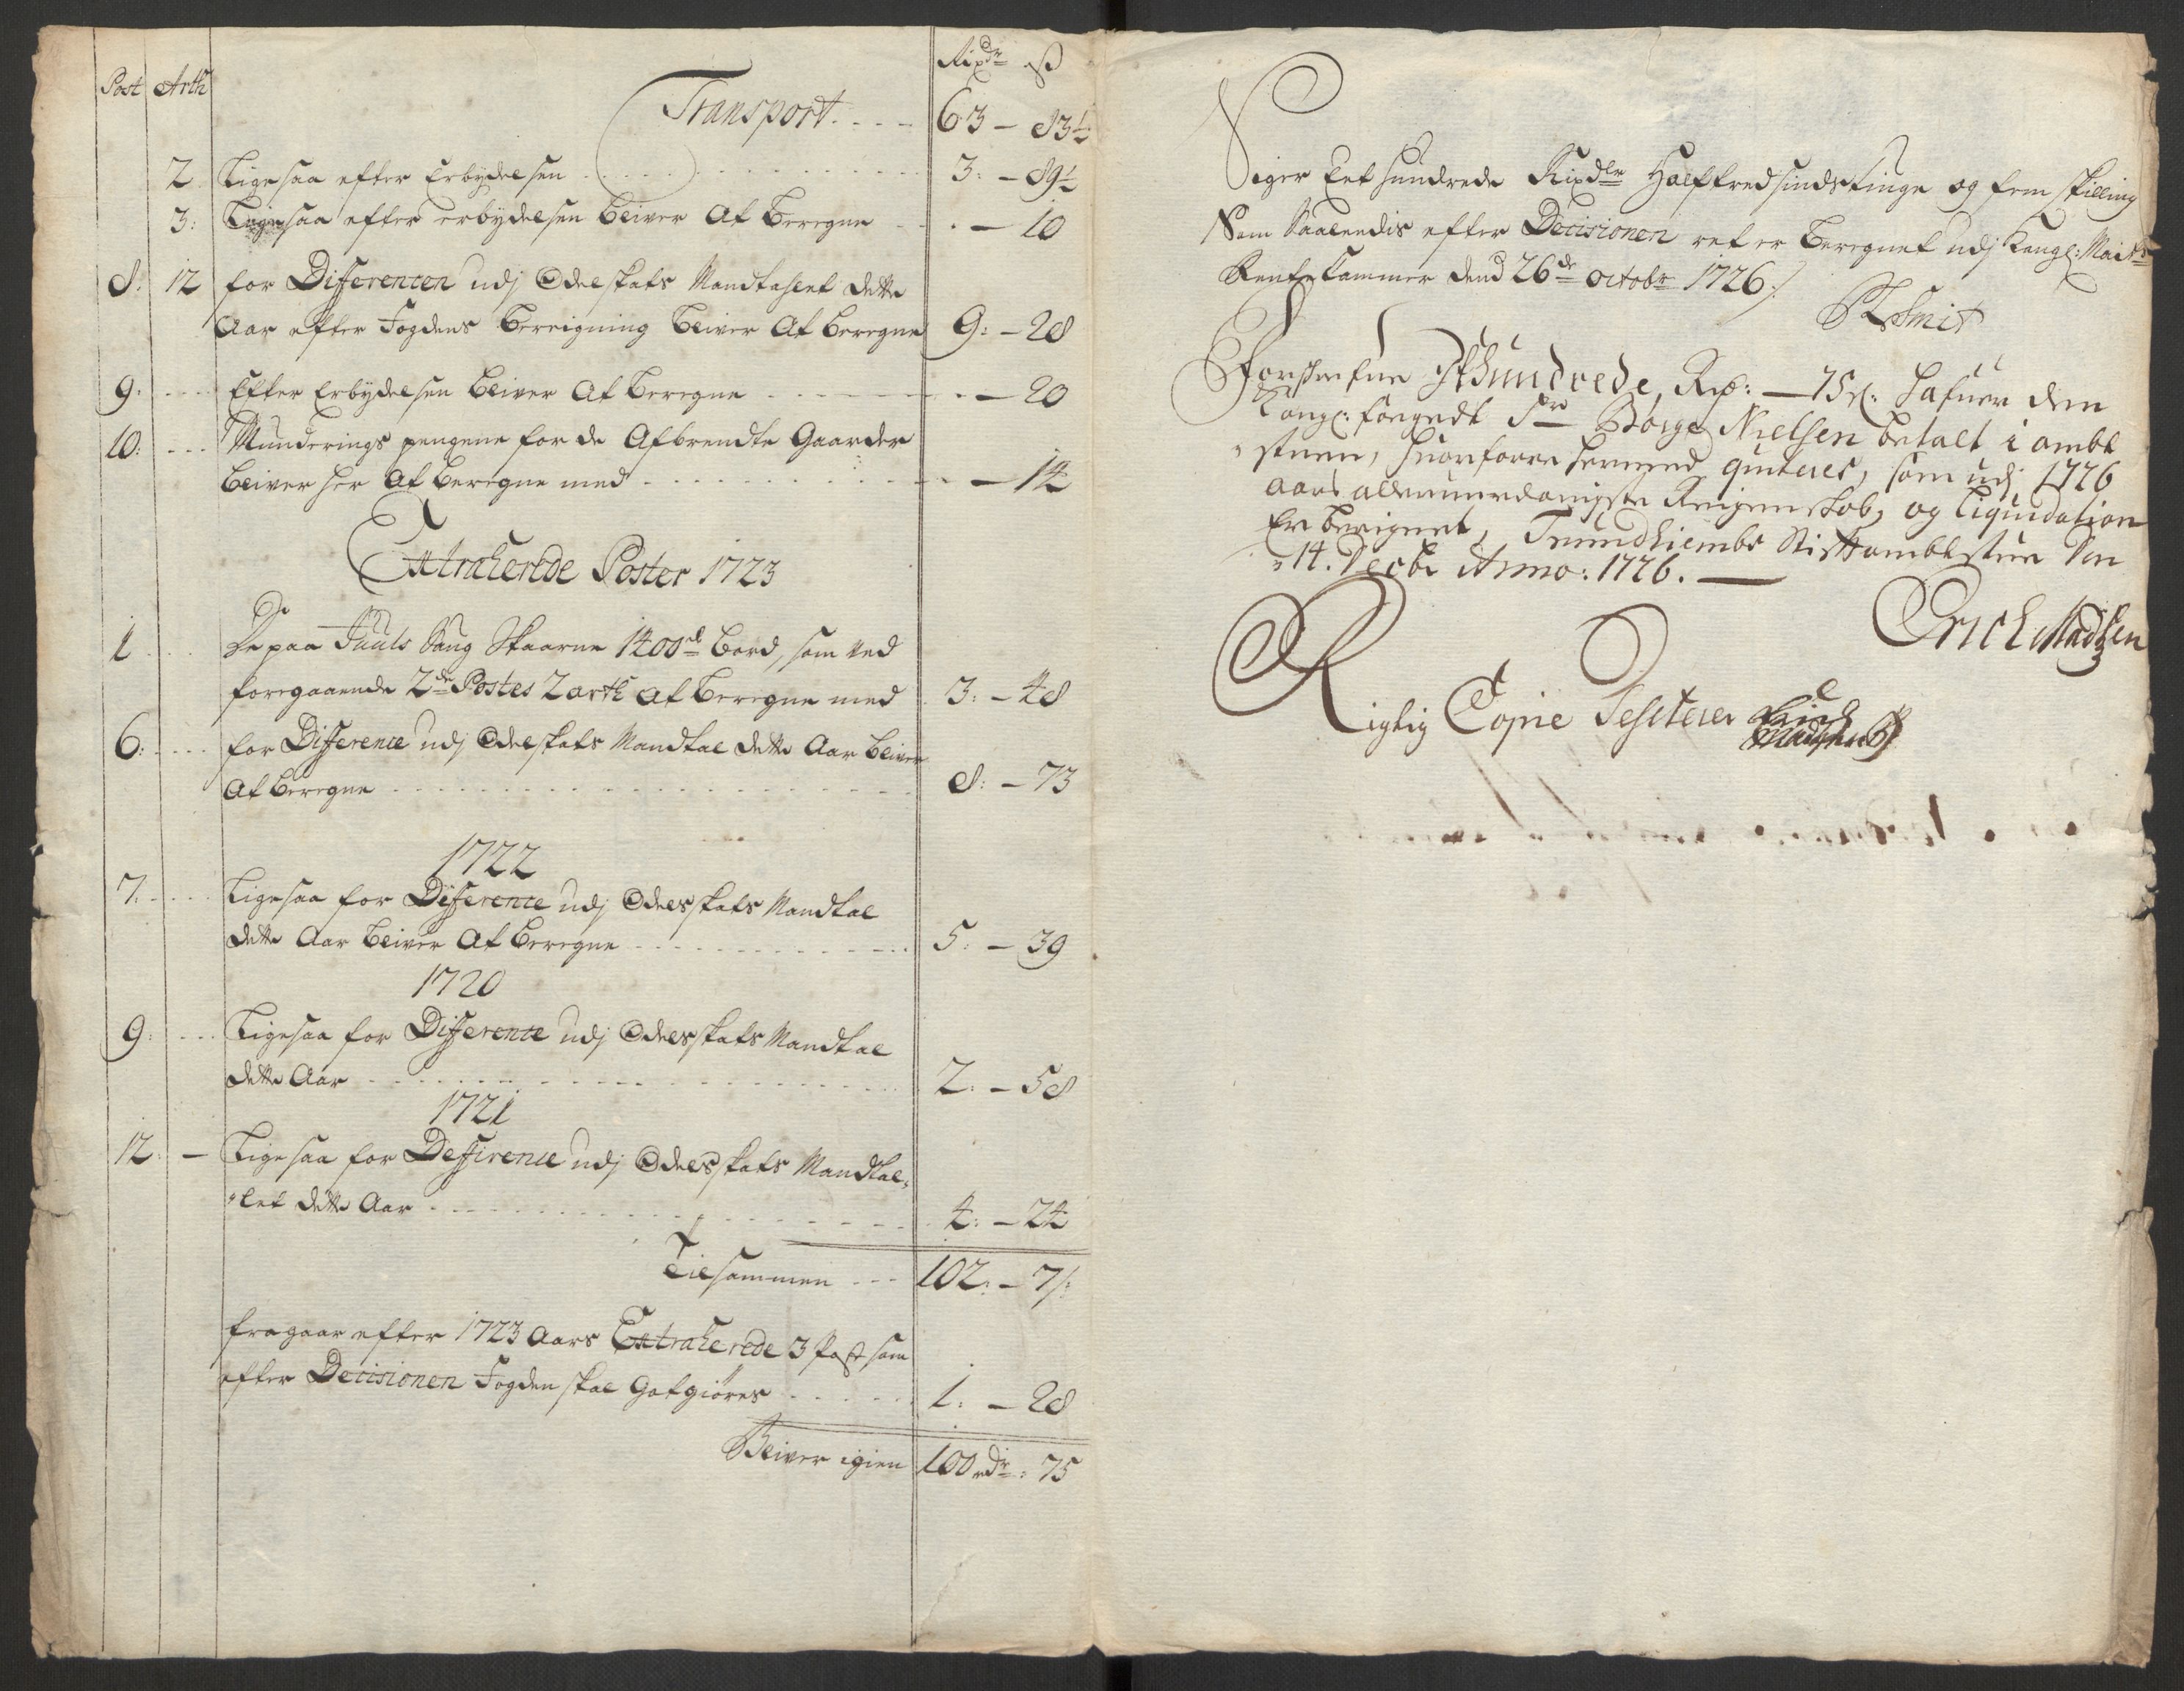 Post Arth Rixdr ß
Transport . . . . 63 – 83½
2 Ligesaa efter Erbydelsen . . . . . . 3: – 89½
3: Ligesaa efter erbydelsen bliver At beregne – 10
8: 12 for Differencen udj Odelskats Mandtallet dette
Aar efter Fogdens bereigning bliver At beregne 9: – 28
9: Efter Erbydelsen bliver At beregne . . . – 20
10: Munderings pengene for de Afbrendte Gaarder
bliver her At beregne med . . . . – 14
Extraherede Poster 1723
1 De paa Juuls Saug Skaarne 1400d bord, som ved
foregaaende 2de Postes 2 arth at beregne med 3: – 48
6: for Difference udj Odelskats Mandtal dette Aar bliver
At beregne . . . . . 8: – 73
1722
7. Ligesaa for Difference udj Odelsskats Mandtal
dette Aar bliver At beregne . . . . 5: – 39
1720
9: Ligesaa for Difference udj Odelsskats Mandtal
dette Aar . . . . . 2: – 58
1721
12: – Ligesaa for Defirence udj Odelsskats Mandtal-
let dette Aar . . . . . 4: – 24
Tilsammen . . . 102: – 7/:
fragaar efter 1723 Aars Extraherede 3 Post som
efter Decisionen Fogden skal Gotgiøres . . . . 1: – 28
Bliver igien 100 rdr: 75
Siger Eet hundrede Rixdlr Halftredsindstiuge og fem skilling
Som Saaledis efter Decisionen ret er beregnet udj Kongl: Maits
Rente Cammer dend 26de octobr 1726:/
Smit
Forskrefne Et Hundrede, Rixd: – 75 s: hafuer den
Kongl: foegedt Sr Børge Nielsen betalt i ambt
stuen, huorforre hermed quiteres, som udj 1726
aars allerunerdanigste Reigenskob, og liquidation
Er berignet, Trundhiembs Stiftambtstue den
14. Decbr Anno: 1726. –
Erich Madtzen
Rigtig Copie Testerer